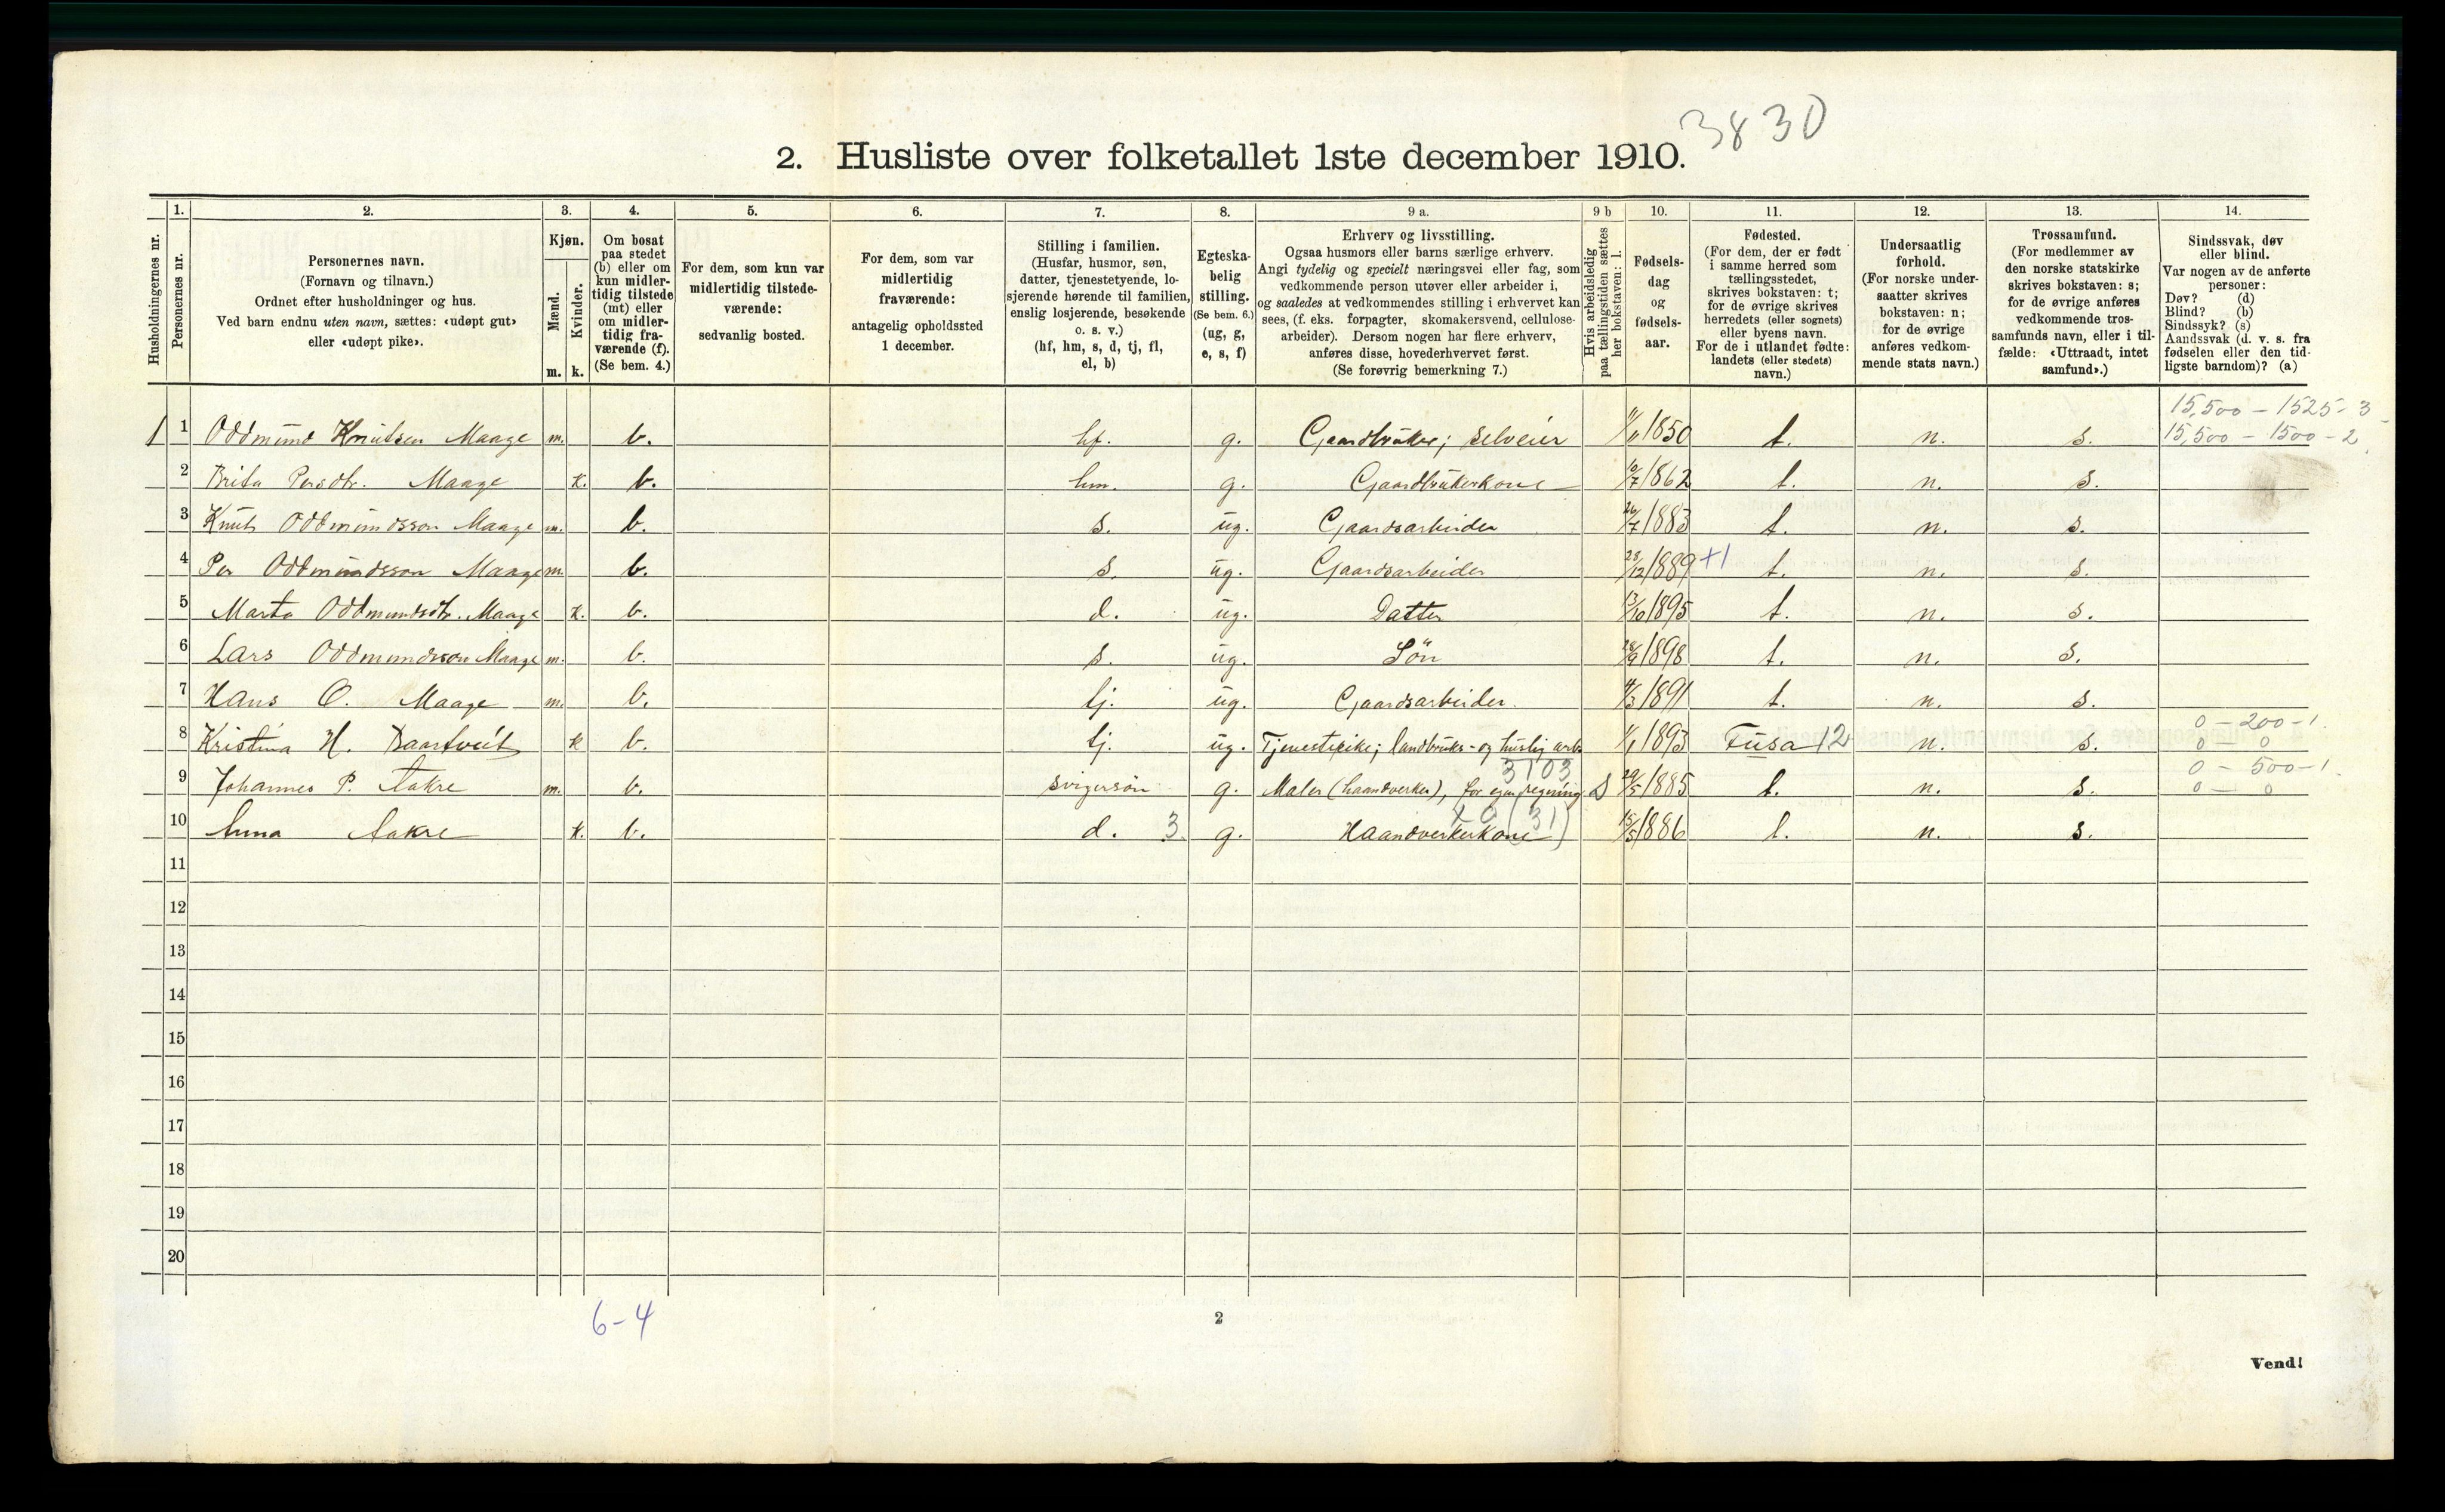 3830
2. Husliste over folketallet 1ste december 1910.
Husholdningernes nr.
1. Personernes nr.
2. Personernes navn.
(Fornavn og tilnavn.)
Ordnet efter husholdninger og hus.
Ved barn endnu uten navn, sættes: «udøpt gut»
eller «udøpt pike».
3. Kjøn.
Mænd. m.
Kvinder. k.
4. Om bosat
paa stedet
(b) eller om
kun midler-
tidig tilstede
(mt) eller
om midler-
tidig fra-
værende (f).
(Se bem. 4.)
5. For dem, som kun var
midlertidig tilstede-
værende:
sedvanlig bosted.
6. For dem, som var
midlertidig
fraværende:
antagelig opholdssted
1 december.
7. Stilling i familien.
(Husfar, husmor, søn,
datter, tjenestetyende, lo-
sjerende hørende til familien,
enslig losjerende, besøkende
o. s. v.)
(hf, hm, s, d, tj, fl,
el, b)
8. Egteska-
belig
stilling.
(Se bem. 6.)
(ug, g,
e, s, f)
9 a. Erhverv og livsstilling.
Ogsaa husmors eller barns særlige erhverv.
Angi tydelig og specielt næringsvei eller fag, som
vedkommende person utøver eller arbeider i,
og saaledes at vedkommendes stilling i erhvervet kan
sees, (f. eks. forpagter, skomakersvend, cellulose-
arbeider). Dersom nogen har flere erhverv,
anføres disse, hovederhvervet først.
(Se forøvrig bemerkning 7.)
9 b Hvis arbeidsledig
paa tællingstiden sættes
her bokstaven: l.
10. Fødsels-
dag
og
fødsels-
aar.
11. Fødested.
(For dem, der er født
i samme herred som
tællingsstedet,
skrives bokstaven: t;
for de øvrige skrives
herredets (eller sognets)
eller byens navn.
For de i utlandet fødte:
landets (eller stedets)
navn.)
12. Undersaatlig
forhold.
(For norske under-
saatter skrives
bokstaven: n;
for de øvrige
anføres vedkom-
mende stats navn.)
13. Trossamfund.
(For medlemmer av
den norske statskirke
skrives bokstaven: s;
for de øvrige anføres
vedkommende tros-
samfunds navn, eller i til-
fælde: «Uttraadt, intet
samfund».)
14. Sindssvak, døv
eller blind.
Var nogen av de anførte
personer:
Døv? (d)
Blind? (b)
Sindssyk? (s)
Aandssvak (d. v. s. fra
fødselen eller den tid-
ligste barndom)? (a)
15,500 - 1525 - 3
1 1 Oddmund Knutsen Maage m. b. hf. g. Gaardbruker; selveier 1850 t. n. s. 15,500 - 1500 - 2
2 Brita Persdtr. Maage k. b. hm. g. Gaardbrukerkone 10/7 1862 t. n. s.
3 Knut Oddmundsson Maage m. b. s. ug. Gaardsarbeider 26/7 1883 t. n. s.
4 Per Oddmundsson Maage m. b. s. ug. Gaardsarbeider 28/12 1889 +1 t. n. s.
5 Marta Oddmundsdtr. Maage k. b. d. ug. Datter 13/10 1895 t. n. s.
6 Lars Oddmundsson Maage m. b. s. ug. Søn 28/9 1898 t. n. s.
7 Hans O. Maage m. b. tj. ug. Gaardsarbeider. 1891 t. n. s.
0 - 200 - 1.
8 Kristina H. k b. tj. ug. Tjenestepike; landbruks- og huslig arb. 1/1 1893 Fusa 12 n. s. 0 - 0
3103 0 - 500 - 1.
9 Johannes P. Aakre m. b. svigersøn g. Maler (haandverker), for egen regning 29/5 1885 t. n. s. 0 - 0
(31)
10 Anna Aakre k. b. d. 3 g. Haandverkerkone 15/5 1886 t. n. s.
11
12
13
14
15
16
17
18
19
20
6-4
2
Vend!